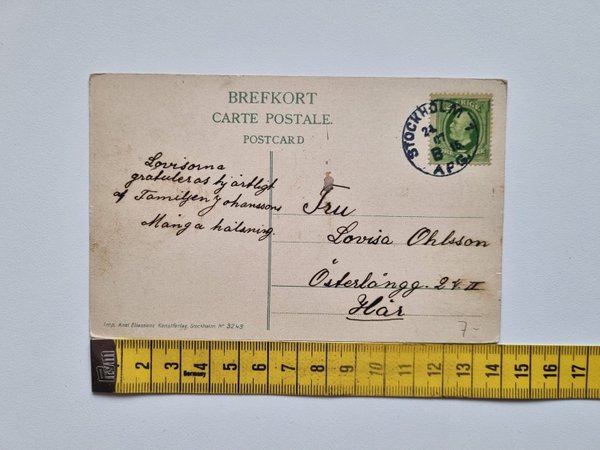 BREFKORT
CARTE POSTALE.
POSTCARD
SVERIGE
STOCKHOLM
24
07
B
AFG.
Lovisorna
gratuleras hjärtligt
af Familjen Johanssons
Många hälsning.
Fru
Lovisa Ohlsson
Österlångg. 24 II
Här
7-
Imp. Axel Eliassons Konstförlag, Stockholm. Nº 3243
2 3 4 5 6 7 8 9 10 11 12 13 14 15 16 17
Germany